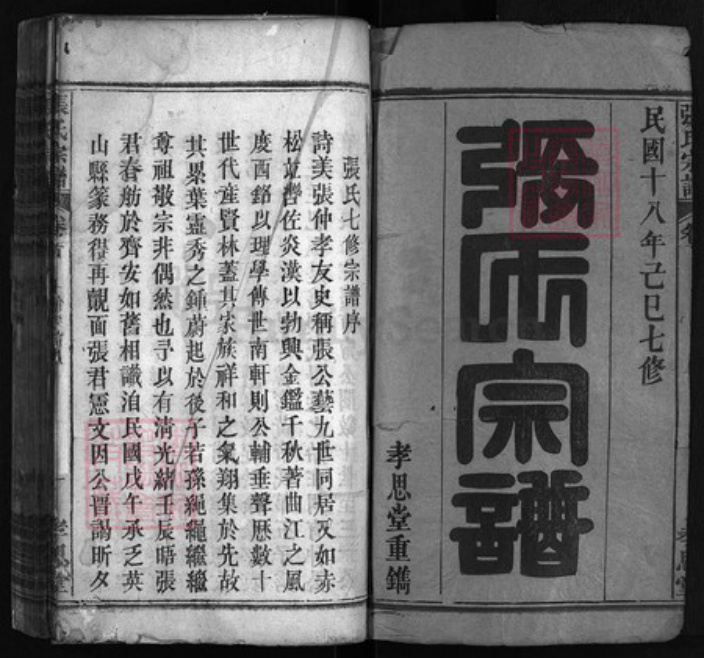 民國十八年己巳七修
張氏宗譜
孝思堂重鐫
張氏七修宗譜序
詩美張仲孝友史稱張公藝九世同居又如赤
松竝轡佐炎漢以勃興金鑑千秋著曲江之風
度酉銘以理學傳世南軒則公輔垂聲歷數十
世代産賢林蓋其家族祥和之氣翔集於先故
其累葉靈秀之鍾蔚起於後子若孫繩繩繼繼
尊祖敬宗非偶然也予以有淸光緒壬辰晤張
君春舫於齊安如舊相識洎民國戊午承乏英
山縣篆務得再覿面張君憲文因公晉謁昕夕
張氏宗譜
孝思堂